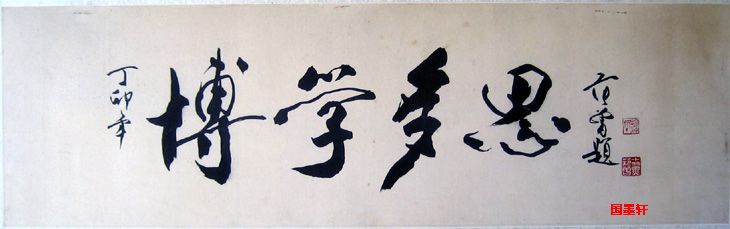 丁卯年
博学多思
范曾题
国墨轩